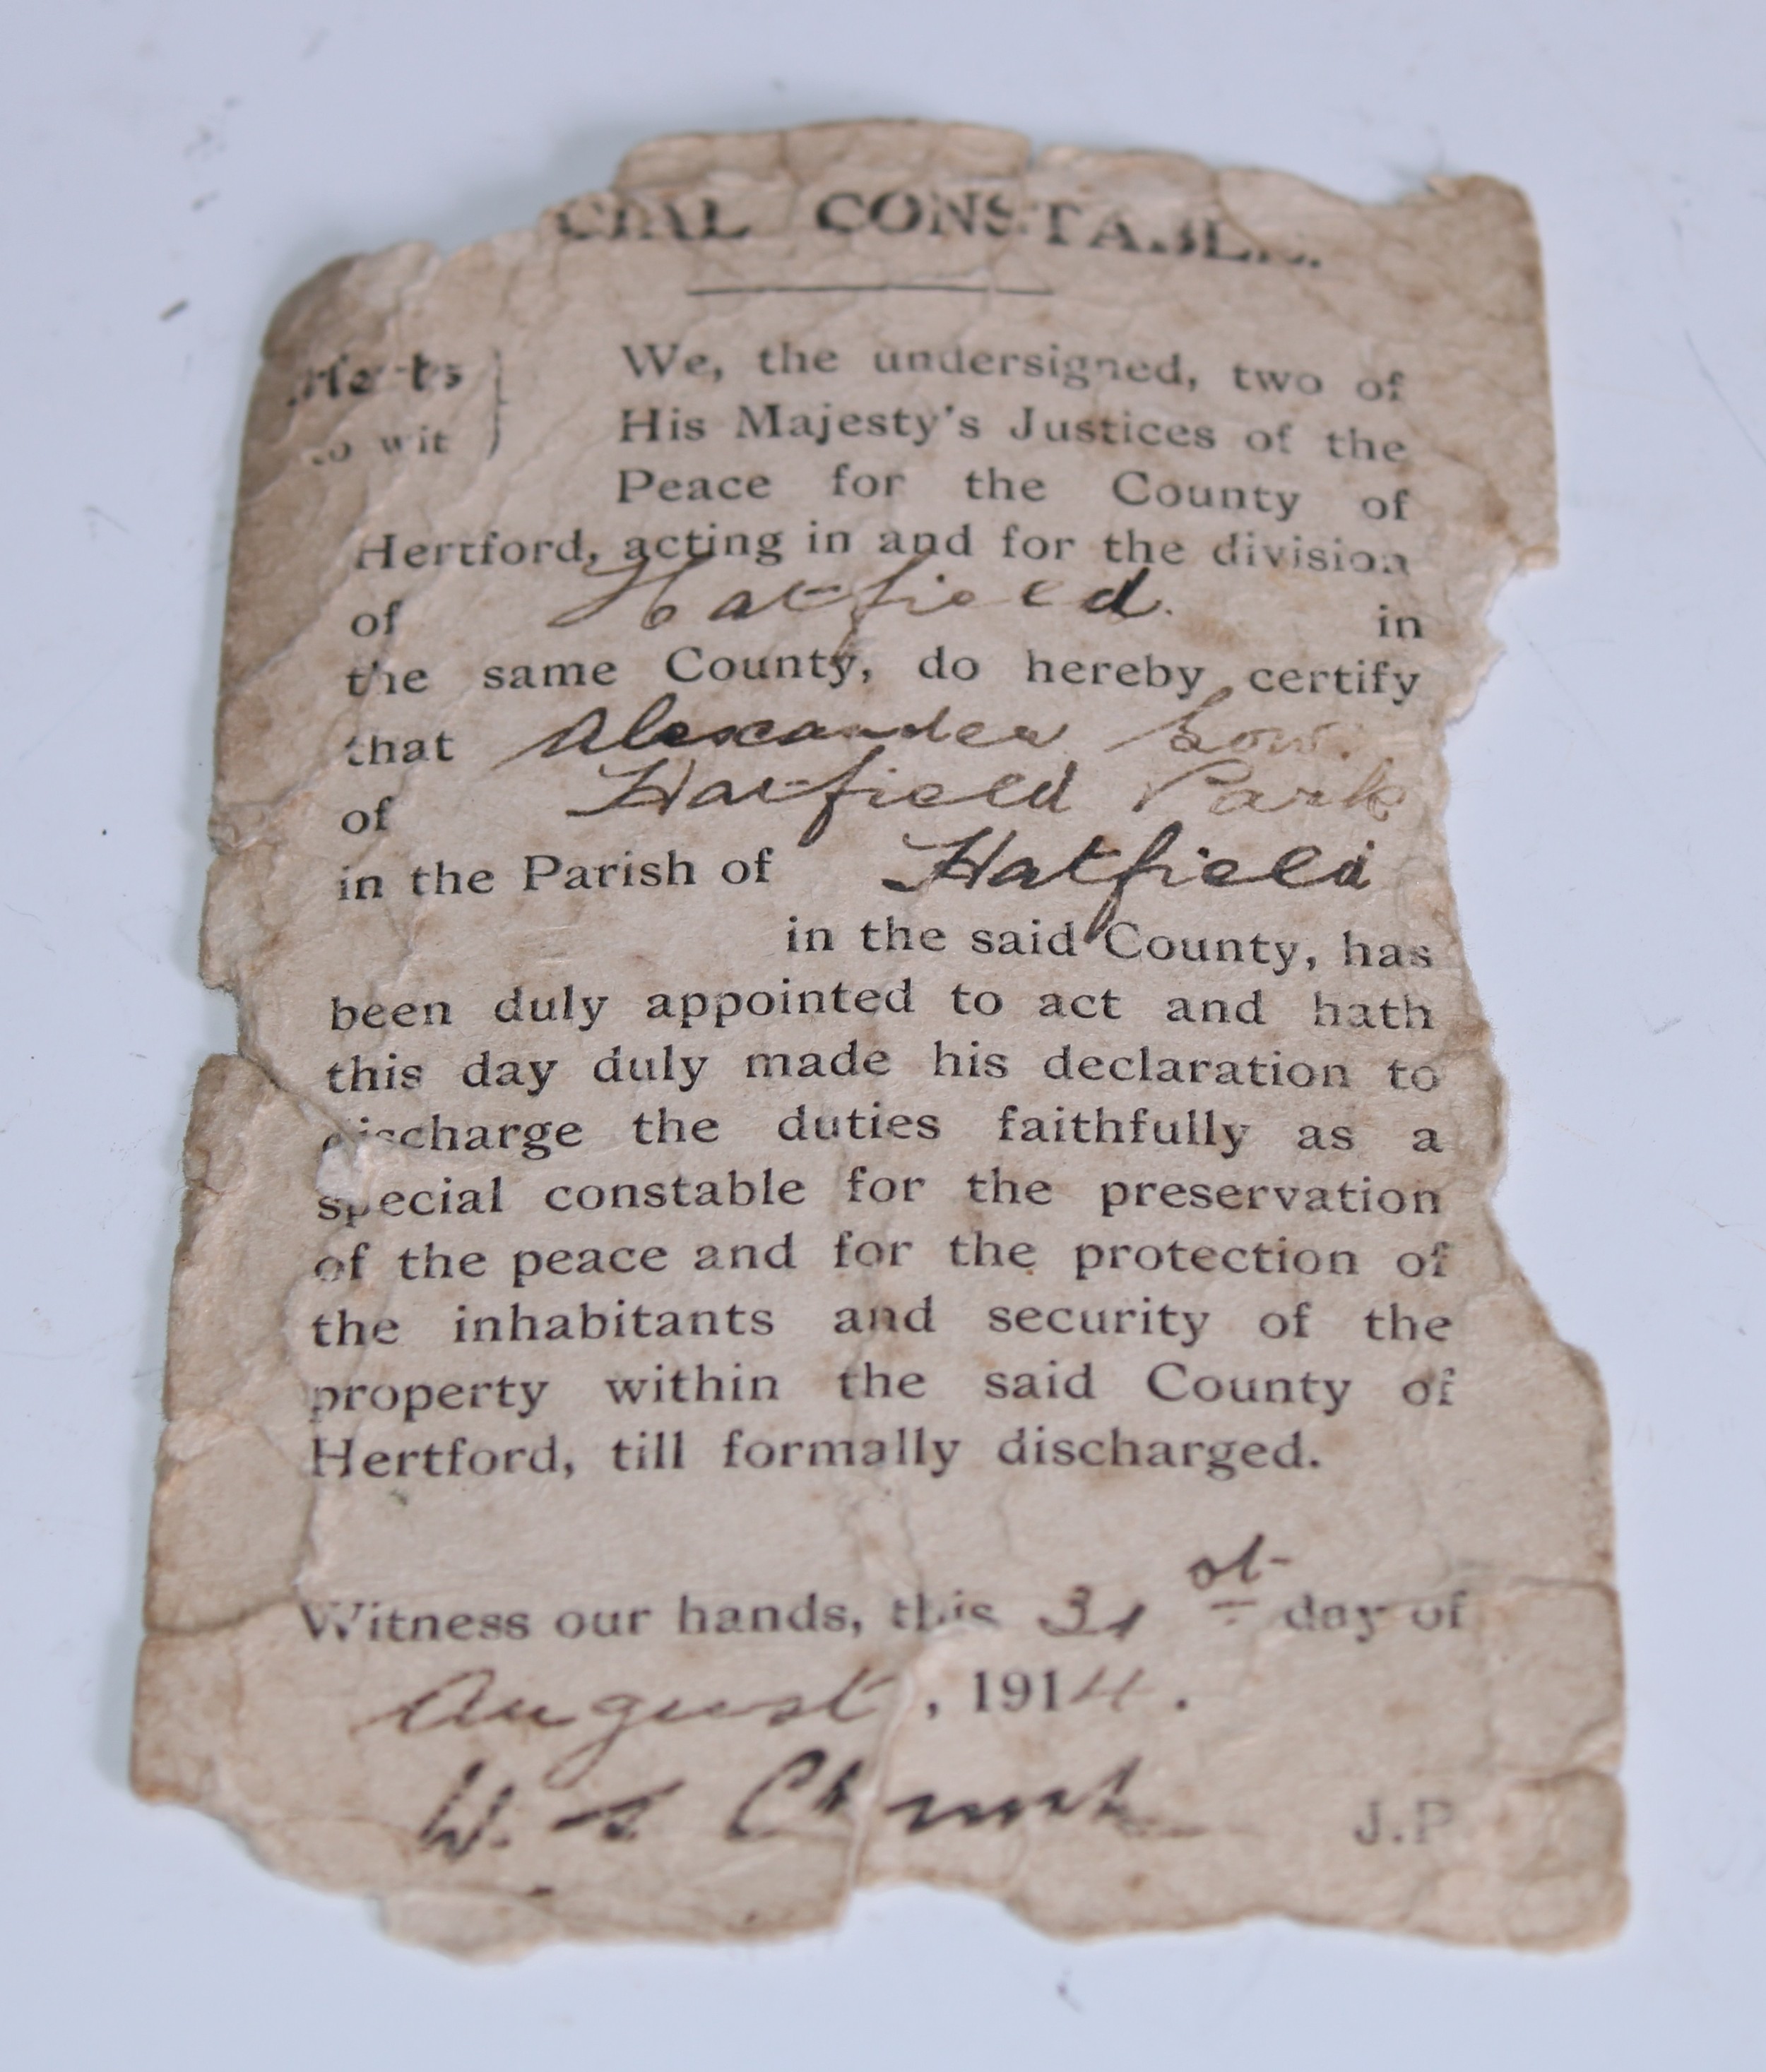 CIAL CONSTABLE.
Herts
to wit
We, the undersigned, two of
His Majesty's Justices of the
Peace for the County of
Hertford, acting in and for the division
of Hatfield. in
the same County, do hereby certify
that Alexander Low.
of Hatfield Park
in the Parish of Hatfield
in the said County, has
been duly appointed to act and hath
this day duly made his declaration to
discharge the duties faithfully as a
special constable for the preservation
of the peace and for the protection of
the inhabitants and security of the
property within the said County of
Hertford, till formally discharged.
Witness our hands, this 31st day of
August, 1914.
W. J.P.